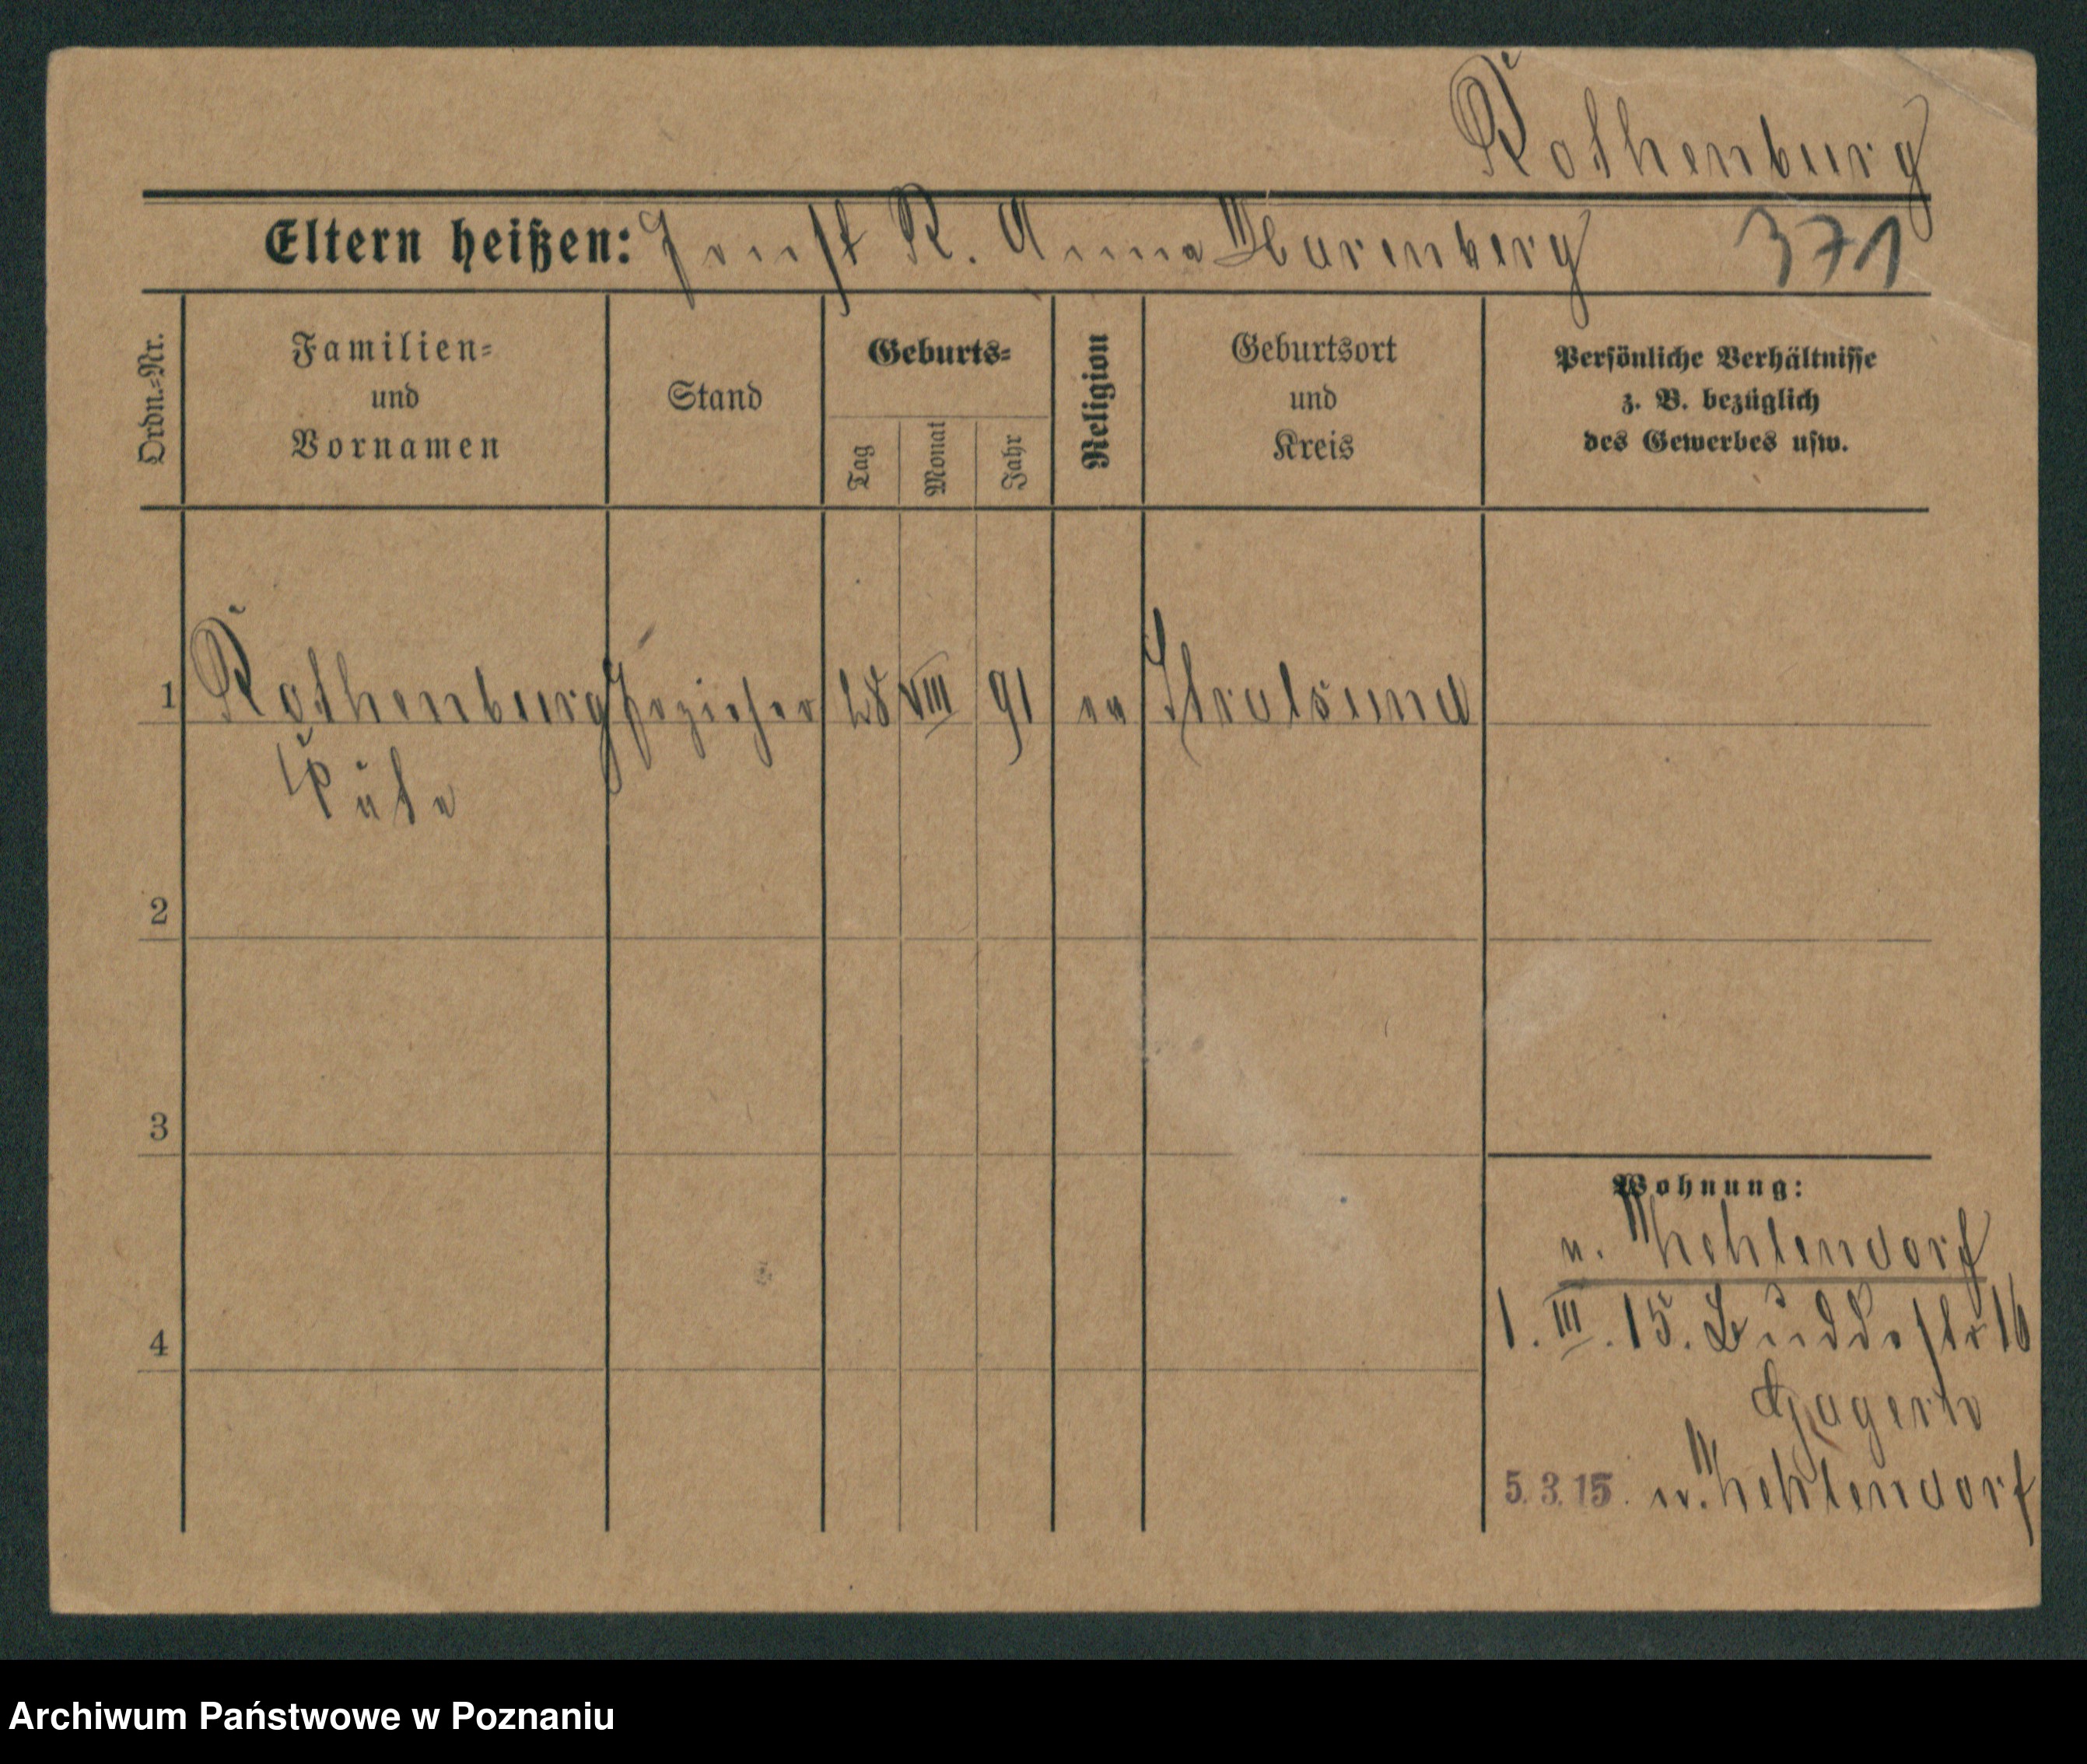 Rothenburg
Eltern heißen: Ernst R. Anna Marenberg 371
Ordn.=Nr.
Familien=
und
Vornamen
Stand
Geburts=
Tag
Monat
Jahr
Religion
Geburtsort
und
Kreis
Persönliche Verhältnisse
z. B. bezüglich
des Gewerbes usw.
1 Rothenburg Erzieher 28 VIII 91 ev Stralsund
Käte
2
3
4
Wohnung:
n. Mehlendorf
1. III. 15. Buddestr 16
Hagern
5.3.15. n. Mehlendorf
Archiwum Państwowe w Poznaniu